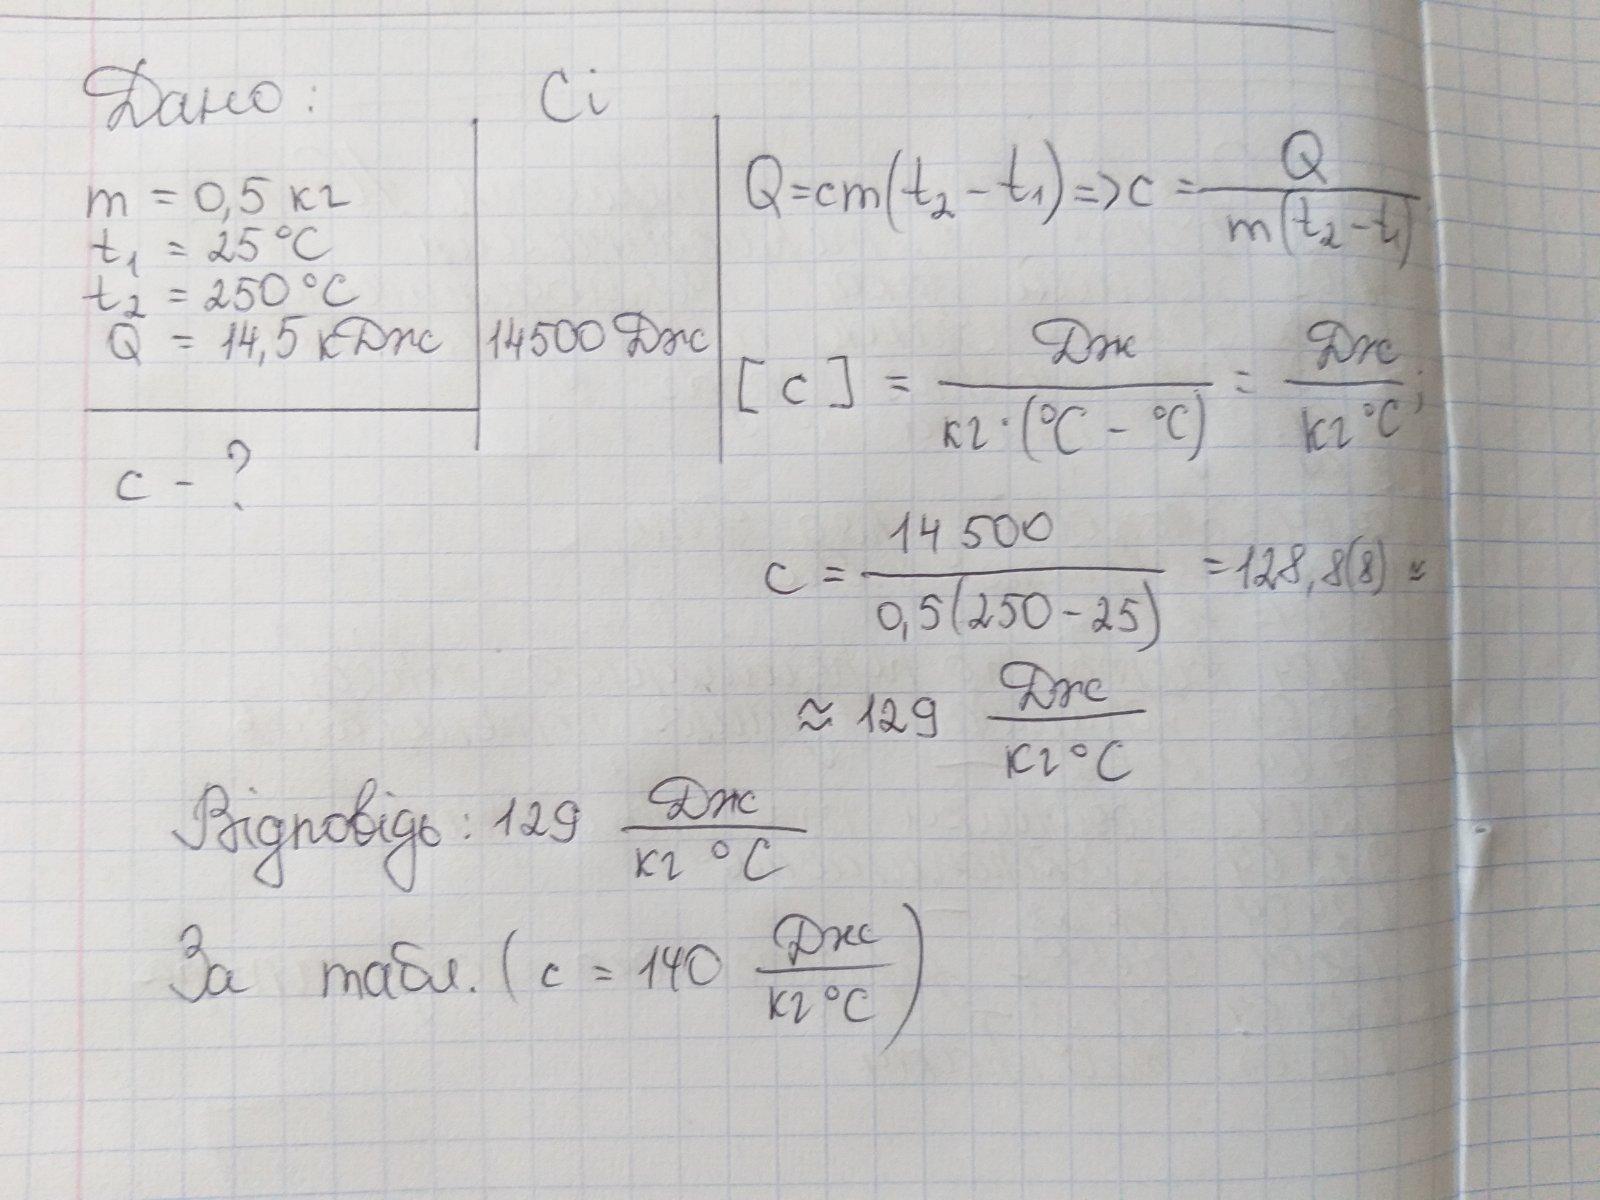 Дано: Сі
m = 0,5 кг
t₁ = 25 °C
t₂ = 250 °C
Q = 14,5 кДж 14500 Дж
c - ?
Q = cm(t₂ - t₁) => c = Q / m(t₂ - t₁)
[c] = Дж / кг · (°C - °C) = Дж / кг °C;
c = 14 500 / 0,5(250 - 25) = 128,8(8) ≈
≈ 129 Дж / кг °C
Відповідь: 129 Дж / кг °C
За табл. (c = 140 Дж / кг °C)